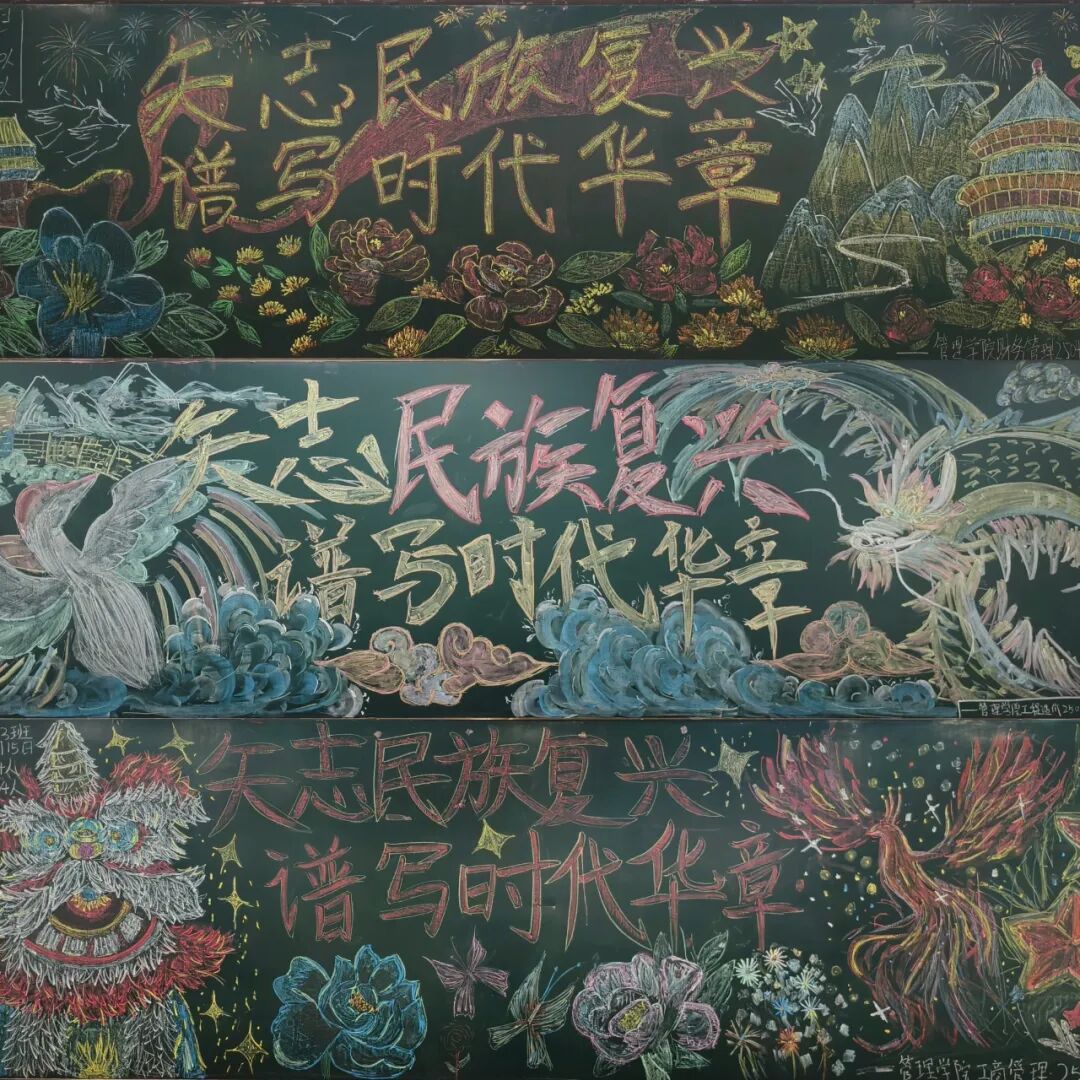 矢志民族复兴
谱写时代华章
一管理学院财务管理
矢志民族复兴
谱写时代华章
一管理学院工程造价250
3班
15日
人
4人
矢志民族复兴
谱写时代华章
一管理学院工商管理